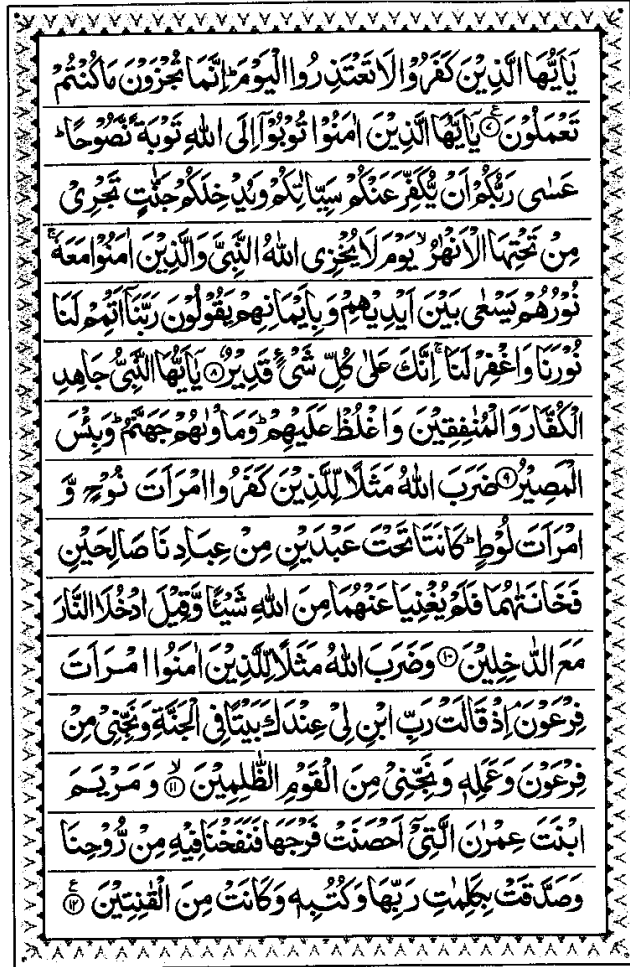 يٰۤاَيُّهَا الَّذِيۡنَ كَفَرُوۡا لَا تَعۡتَذِرُوا الۡيَوۡمَؕ اِنَّمَا تُجۡزَوۡنَ مَا كُنۡتُمۡ
تَعۡمَلُوۡنَ ۷ يٰۤاَيُّهَا الَّذِيۡنَ اٰمَنُوۡا تُوۡبُوۡۤا اِلَى اللّٰهِ تَوۡبَةً نَّصُوۡحًاؕ
عَسٰى رَبُّكُمۡ اَنۡ يُّكَفِّرَ عَنۡكُمۡ سَيِّاٰتِكُمۡ وَيُدۡخِلَكُمۡ جَنّٰتٍ تَجۡرِىۡ
مِنۡ تَحۡتِهَا الۡاَنۡهٰرُۙ يَوۡمَ لَا يُخۡزِى اللّٰهُ النَّبِىَّ وَالَّذِيۡنَ اٰمَنُوۡا مَعَهٗۚ
نُوۡرُهُمۡ يَسۡعٰى بَيۡنَ اَيۡدِيۡهِمۡ وَبِاَيۡمَانِهِمۡ يَقُوۡلُوۡنَ رَبَّنَاۤ اَتۡمِمۡ لَنَا
نُوۡرَنَا وَاغۡفِرۡ لَنَاۚ اِنَّكَ عَلٰى كُلِّ شَىۡءٍ قَدِيۡرٌ ۸ يٰۤاَيُّهَا النَّبِىُّ جَاهِدِ
الۡكُفَّارَ وَالۡمُنٰفِقِيۡنَ وَاغۡلُظۡ عَلَيۡهِمۡؕ وَمَاۡوٰٮهُمۡ جَهَنَّمُؕ وَبِئۡسَ
الۡمَصِيۡرُ ۹ ضَرَبَ اللّٰهُ مَثَلًا لِّلَّذِيۡنَ كَفَرُوا امۡرَاَتَ نُوۡحٍ وَّ
امۡرَاَتَ لُوۡطٍؕ كَانَتَا تَحۡتَ عَبۡدَيۡنِ مِنۡ عِبَادِنَا صَالِحَيۡنِ
فَخَانَتٰهُمَا فَلَمۡ يُغۡنِيَا عَنۡهُمَا مِنَ اللّٰهِ شَيۡـًٔا وَّقِيۡلَ ادۡخُلَا النَّارَ
مَعَ الدّٰخِلِيۡنَ ۱۰ وَضَرَبَ اللّٰهُ مَثَلًا لِّلَّذِيۡنَ اٰمَنُوا امۡرَاَتَ
فِرۡعَوۡنَۘ اِذۡ قَالَتۡ رَبِّ ابۡنِ لِىۡ عِنۡدَكَ بَيۡتًا فِى الۡجَنَّةِ وَنَجِّنِىۡ مِنۡ
فِرۡعَوۡنَ وَعَمَلِهٖ وَنَجِّنِىۡ مِنَ الۡقَوۡمِ الظّٰلِمِيۡنَۙ ۱۱ وَمَرۡيَمَ
ابۡنَتَ عِمۡرٰنَ الَّتِىۡۤ اَحۡصَنَتۡ فَرۡجَهَا فَنَفَخۡنَا فِيۡهِ مِنۡ رُّوۡحِنَا
وَصَدَّقَتۡ بِكَلِمٰتِ رَبِّهَا وَكُتُبِهٖ وَكَانَتۡ مِنَ الۡقٰنِتِيۡنَ ۱۲ ع